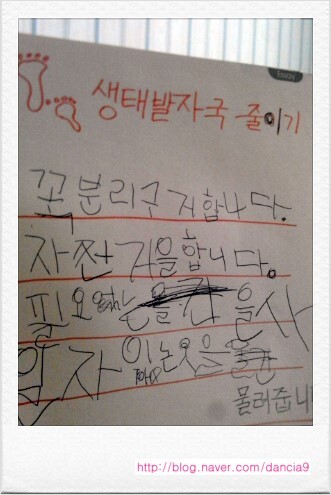 Enjoy
생태발자국 줄이기
꼭 분리구 거합니다.
자전거을합니다.
필요없는 을사
는옷을
물려줍니
http://blog.naver.com/dancia9